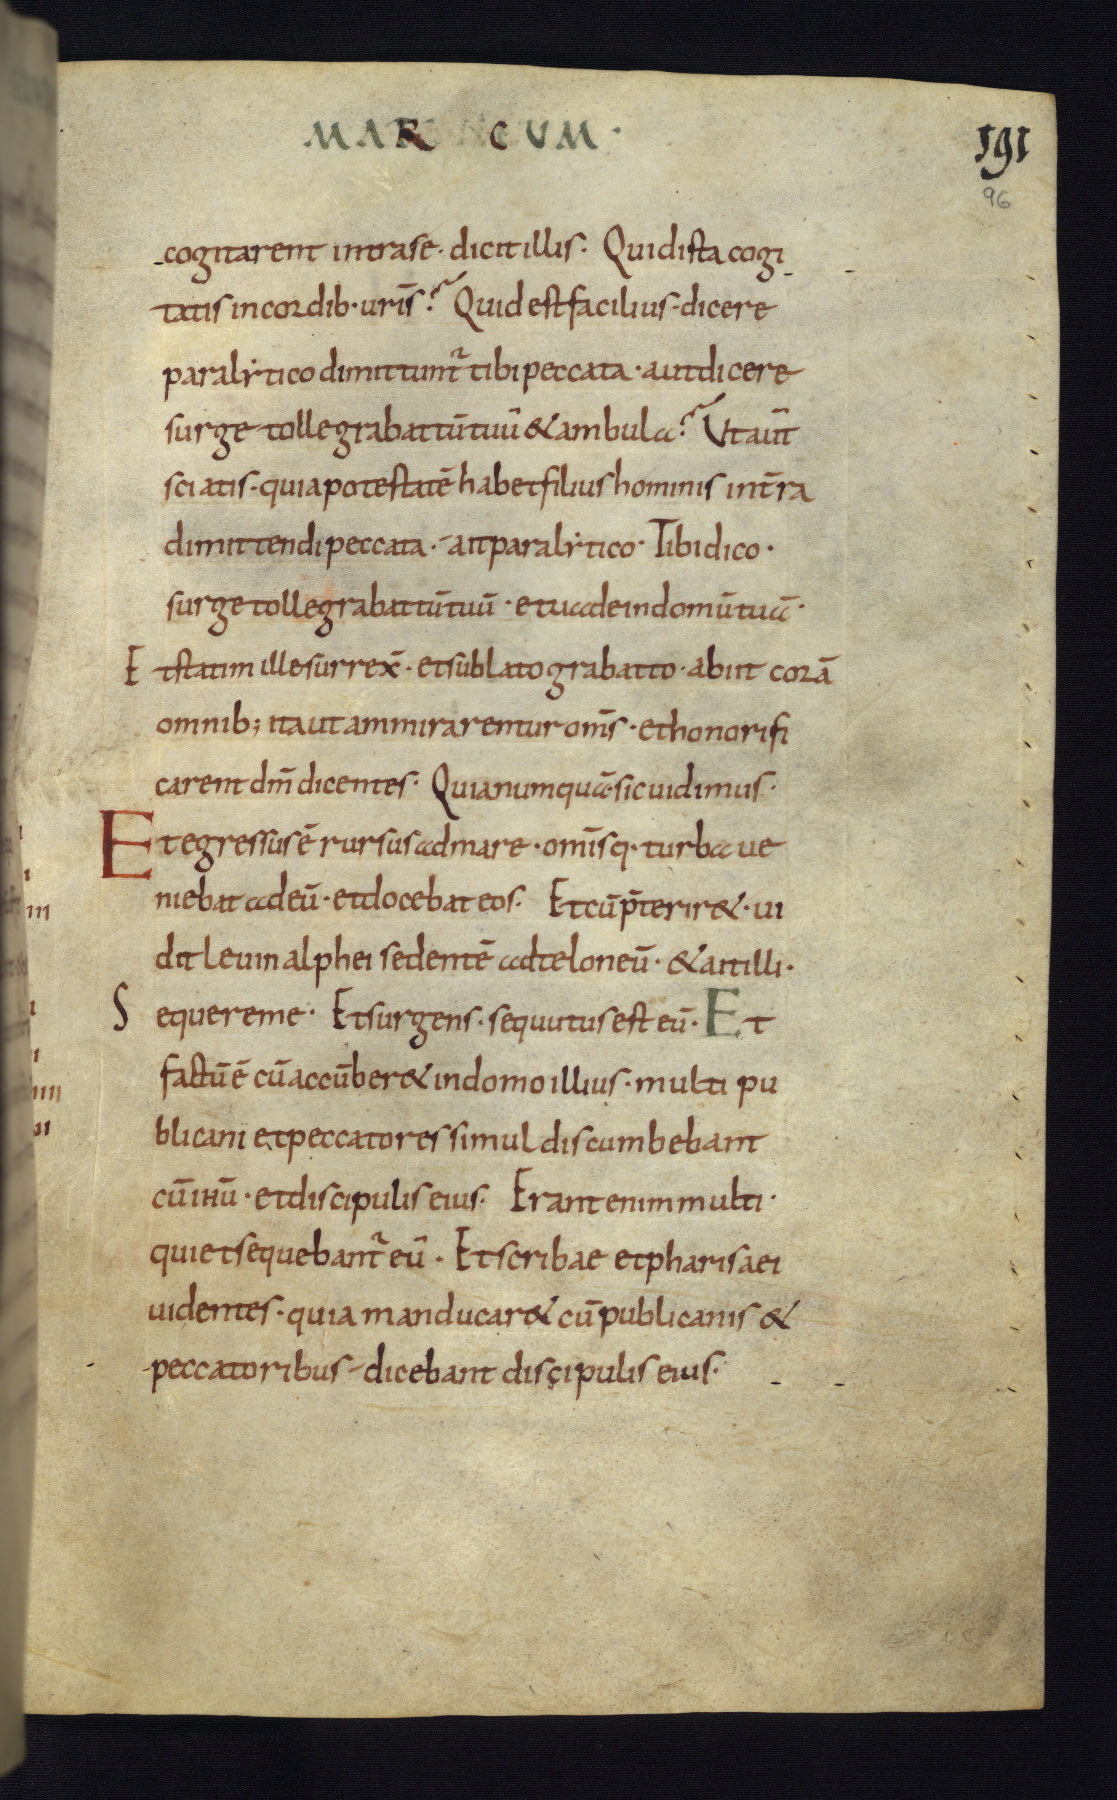 MARCUM ·
191
96
cogitarent intra se · dicit illis · Quid ista cogi
tatis in cordib· uris̄ ? Quid est facilius · dicere
paralẏtico dimittunt᷑ tibi peccata · aut dicere
surge tolle grabattū tuū & ambula ? Ut aut̄
sciatis · quia potestatē habet filius hominis in tr̄ra
dimittendi peccata · ait paralẏtico · Tibi dico ·
surge tolle grabattū tuū · et uade in domū tuā ·
Et statim ille surrex̄ · et sublato grabatto · abiit corā
omnib; ita ut ammirarentur om̄s · et honorifi
carent dm̄ dicentes · Quia numquā sic uidimus ·
Et egressus ē rursus ad mare · omīsq· turba ue
niebat ad eū · et docebat eos · Et cū p̄terir& · ui
dit leuin alphei sedentē ad teloneū · & ait illi ·
Sequere me · Et surgens · sequutus est eū · Et
factū ē cū accūber& in domo illius · multi pu
blicani et peccatores simul discumbebant
cū ihū · et discipulis eius · Erant enim multi ·
qui et sequebant᷑ eū · Et scribae et pharisaei
uidentes · quia manducar& cū publicanis &
peccatoribus · dicebant discipulis eius ·